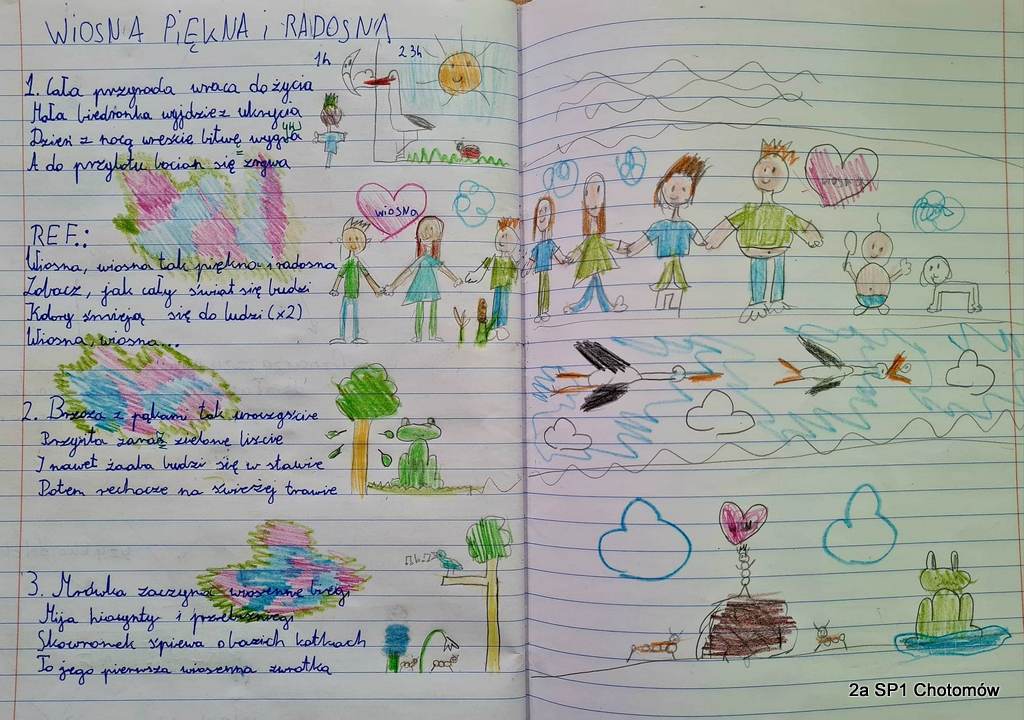 WIOSNA PIĘKNA i RADOSNA
1h
23h
1. Cała przyroda wraca do życia
Mała biedronka wyjdzie z ukrycia
Dzień z nocą wreszcie bitwę wygra
A do przylotu bocian się zrywa
REF.:
Wiosna, wiosna tak piękna i radosna
Zobacz, jak cały świat się budzi
Kolory śmieją się do ludzi (x2)
Wiosna, wiosna...
WIOSNA
2. Brzoza z pąkami tak uroczyście
Przywita zaraz zielone liście
I nawet żaba budzi się w stawie
Potem rechocze na świeżej trawie
3. Mrówka zaczyna wiosenne biegi
Mija hiacynty i przebiśniegi
Skowronek śpiewa o baziach kotkach
To jego pierwsza wiosenna zwrotka
2a SP1 Chotomów